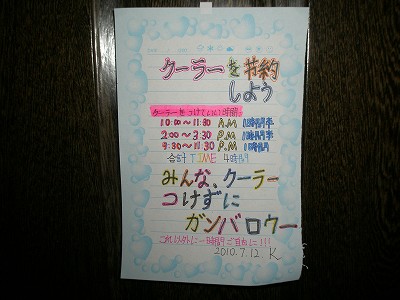 クーラーを節約
しよう
クーラーをつけていい時間
10:00〜11:30 A.M 1時間半
2:00〜3:30 P.M 1時間半
9:30〜11:30 P.M
合計TIME 4時間
みんな、クーラー
つけずに
ガンバロウー
これ以外に一時間ご自由に!!!
2010.7.12. K